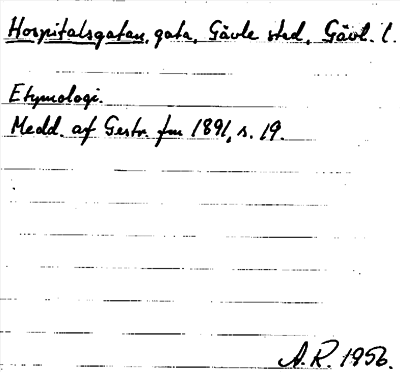 Hospitalsgatan, gata, Gävle stad, Gävl. l.
Etymologi.
Medd. af Gestr. fm 1891, s. 19.
A.R. 1956.